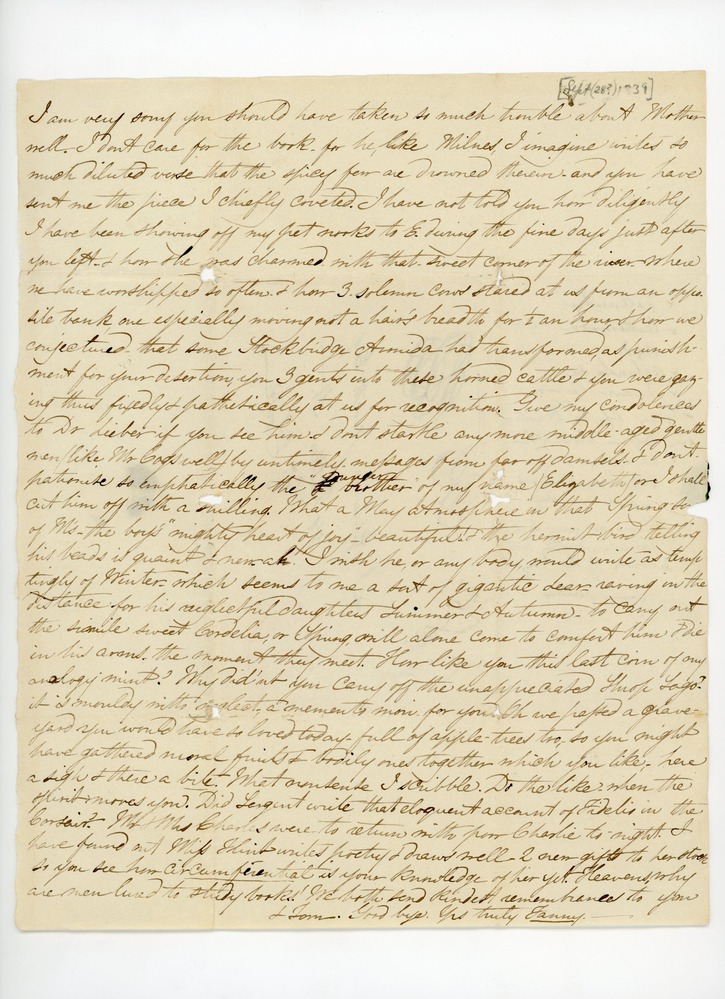 [Sept (28?) 1839]
I am very sorry you should have taken so much trouble about Mother-
well. I don't care for the book- for he, like Milnes, I imagine writes so
much diluted verse that the spicy few are drowned therein- and you have
sent me the piece I chiefly coveted. I have not told you how diligently
I have been showing off my pet nooks to E. during the fine days just after
you left- & how she was charmed with that sweet corner of the river- where
we have worshipped so often. & how 3 solemn cows stared at us from an oppo-
site bank one especially moving not a hair's breadth for ½ an hour, & how we
conjectured that some Stockbridge Armida had transformed, as punish-
ment for your desertion, you 3 gents into these horned cattle & you were gaz-
ing thus fixedly & pathetically at us for recognition. Give my condolences
to Dr Lieber if you see him. & don't startle any more middle-aged gentle
men (like Mr Cogswell) by untimely messages from far off damsels- & don't
patronise so emphatically the younger brother of my name (Elizabeth) or I shall
cut him off with a shilling. What a May atmosphere in that Spring so-
of Ms- the boy's "mighty heart of joy- beautiful! & the hermit bird telling
his beads is quaint & new- ah I wish he, or any body, would write as temp
tingly of Winter- which seems to me a sort of gigantic Lear- raving in the
distance for his neglectful daughters Summer & Autumn- to carry out
the simile sweet Cordelia, or Spring, will alone come to comfort him & die
in his arms- the moment they meet. How like you this last coin of my
analogy mint? Why did'nt you carry off the unappreciated Sago?
it is mouldy with neglect, a memento mori for you. Oh we passed a grave-
yard you would have so loved today- full of apple-trees too, so you might
have gathered moral fruits & bodily ones together which you like- here
a sigh & there a bite- What nonsense I scribble. Do the like when the
spirit moves you. Did Sargent write that eloquent account of Fidelio in the
Corsair? Mr & Mrs Charles were to return with poor Charlie to-night. I
have found out Miss writes poetry & draws well- 2 new gifts to her stock
so you see how circumferential is your knowledge of her yet. Heavens, why
are men used to study books! We both send kindest remembrances to you
& Tom. Good bye. Yrs truly Fanny.